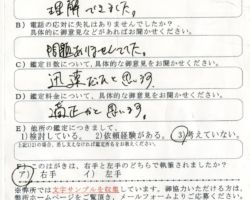 理解できました。
B）電話の応対に失礼はありませんでしたか？
具体的に御意見などがあればお聞かせください。
問題ありませんでした。
C）鑑定日数について、具体的な御意見をお聞かせください。
迅速だと思います
D）鑑定料金について、具体的な御意見をお聞かせください。
適正だと思います。
E）他所の鑑定につきまして。
1）検討している。 2）依頼経験がある。 3）考えていない。
F）このはがきは、右手と左手のどちらで執筆されましたか？
ア）右手 イ）左手
弊所では文字サンプルを収集しています。御協力いただける方は、
弊所ホームページをご覧頂き、メールフォームよりご応募ください。